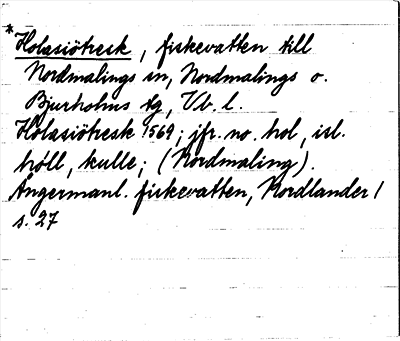 *Holasiötresk, fiskevatten till
Nordmalings sn, Nordmalings o.
Bjurholms tg, Vb. l.
Holasiötresk 1569; jfr. no. hol, isl.
hóll, kulle; (Nordmaling).
Ångermanl. fiskevatten, Nordlander 1
s. 27